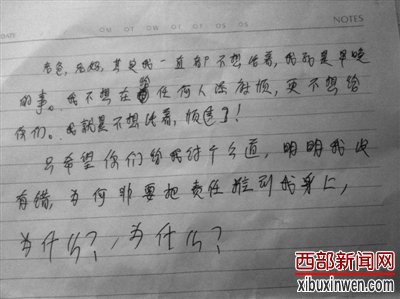 DATE MO TU WE TH FR SA SU NOTES
爸爸,妈妈,其是我一直都不想活着,我死是早晚
的事。我不想在给任何人添麻烦,更不想给
你们。我就是不想活着,烦透了!
只希望你们给我讨个公道,明明我没
有错,为何非要把责任推到我身上,
为什么?,为什么?
西部新闻网
xibuxinwen.com